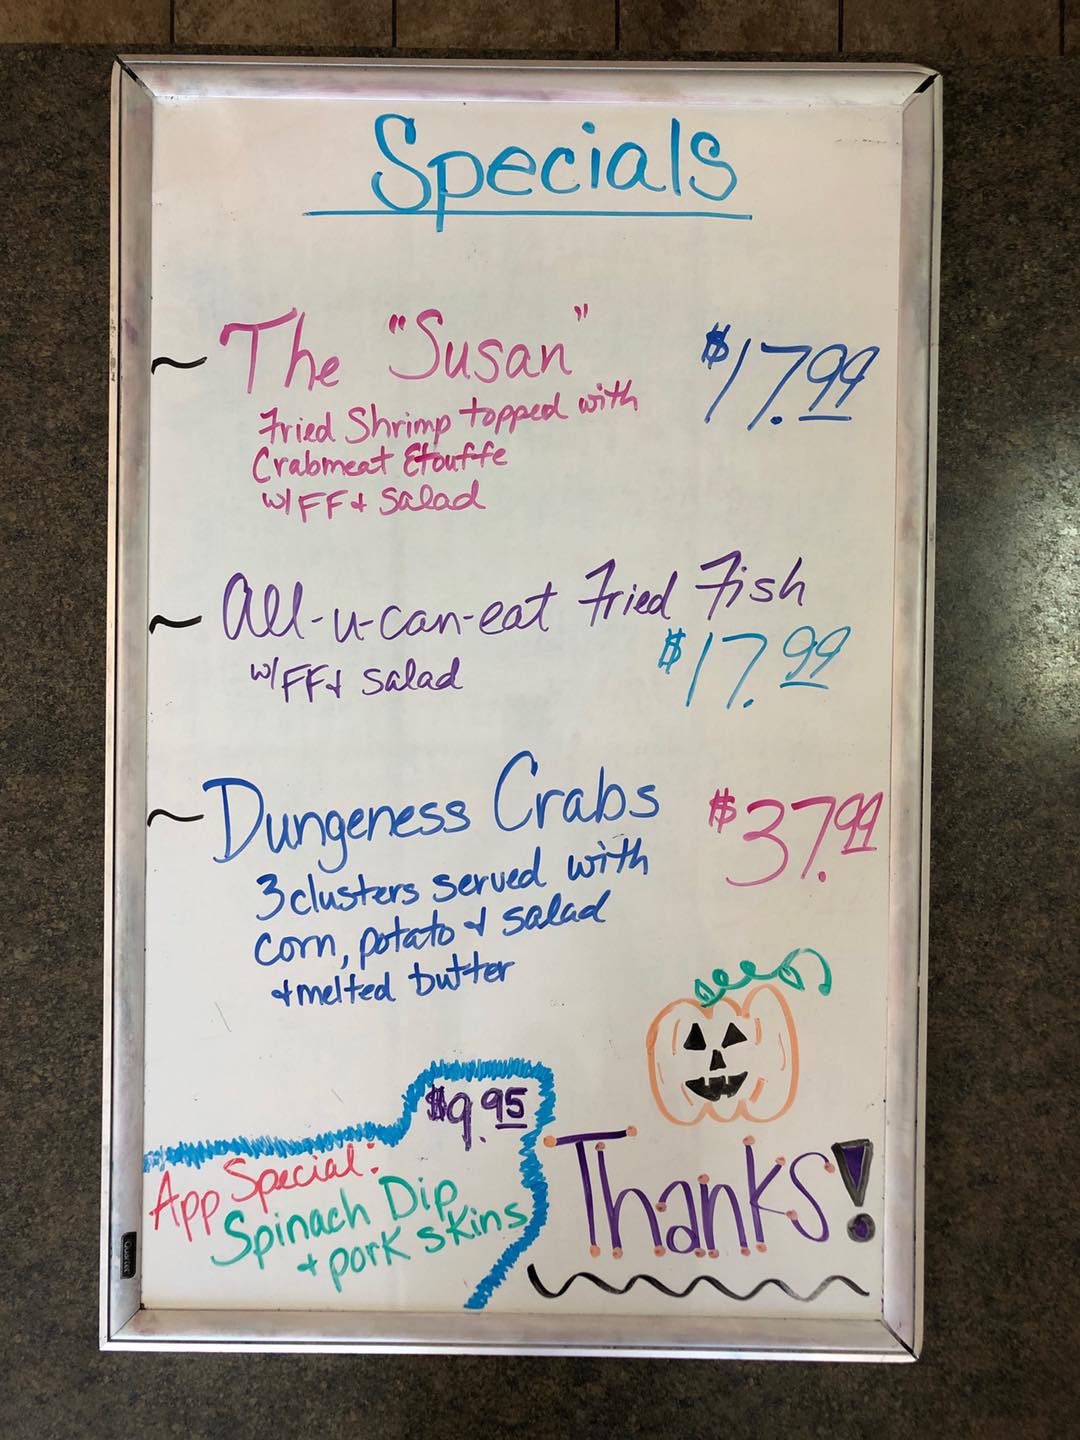 Specials
~ The "Susan" $17.99
Fried Shrimp topped with
Crabmeat Etouffe
w/FF + salad
~ All-u-can-eat Fried Fish
w/FF + salad $17.99
~ Dungeness Crabs $37.99
3 clusters served with
corn, potato + salad
+ melted butter
$9.95
App Special:
Spinach Dip
+ pork skins
Thanks!
Quartet